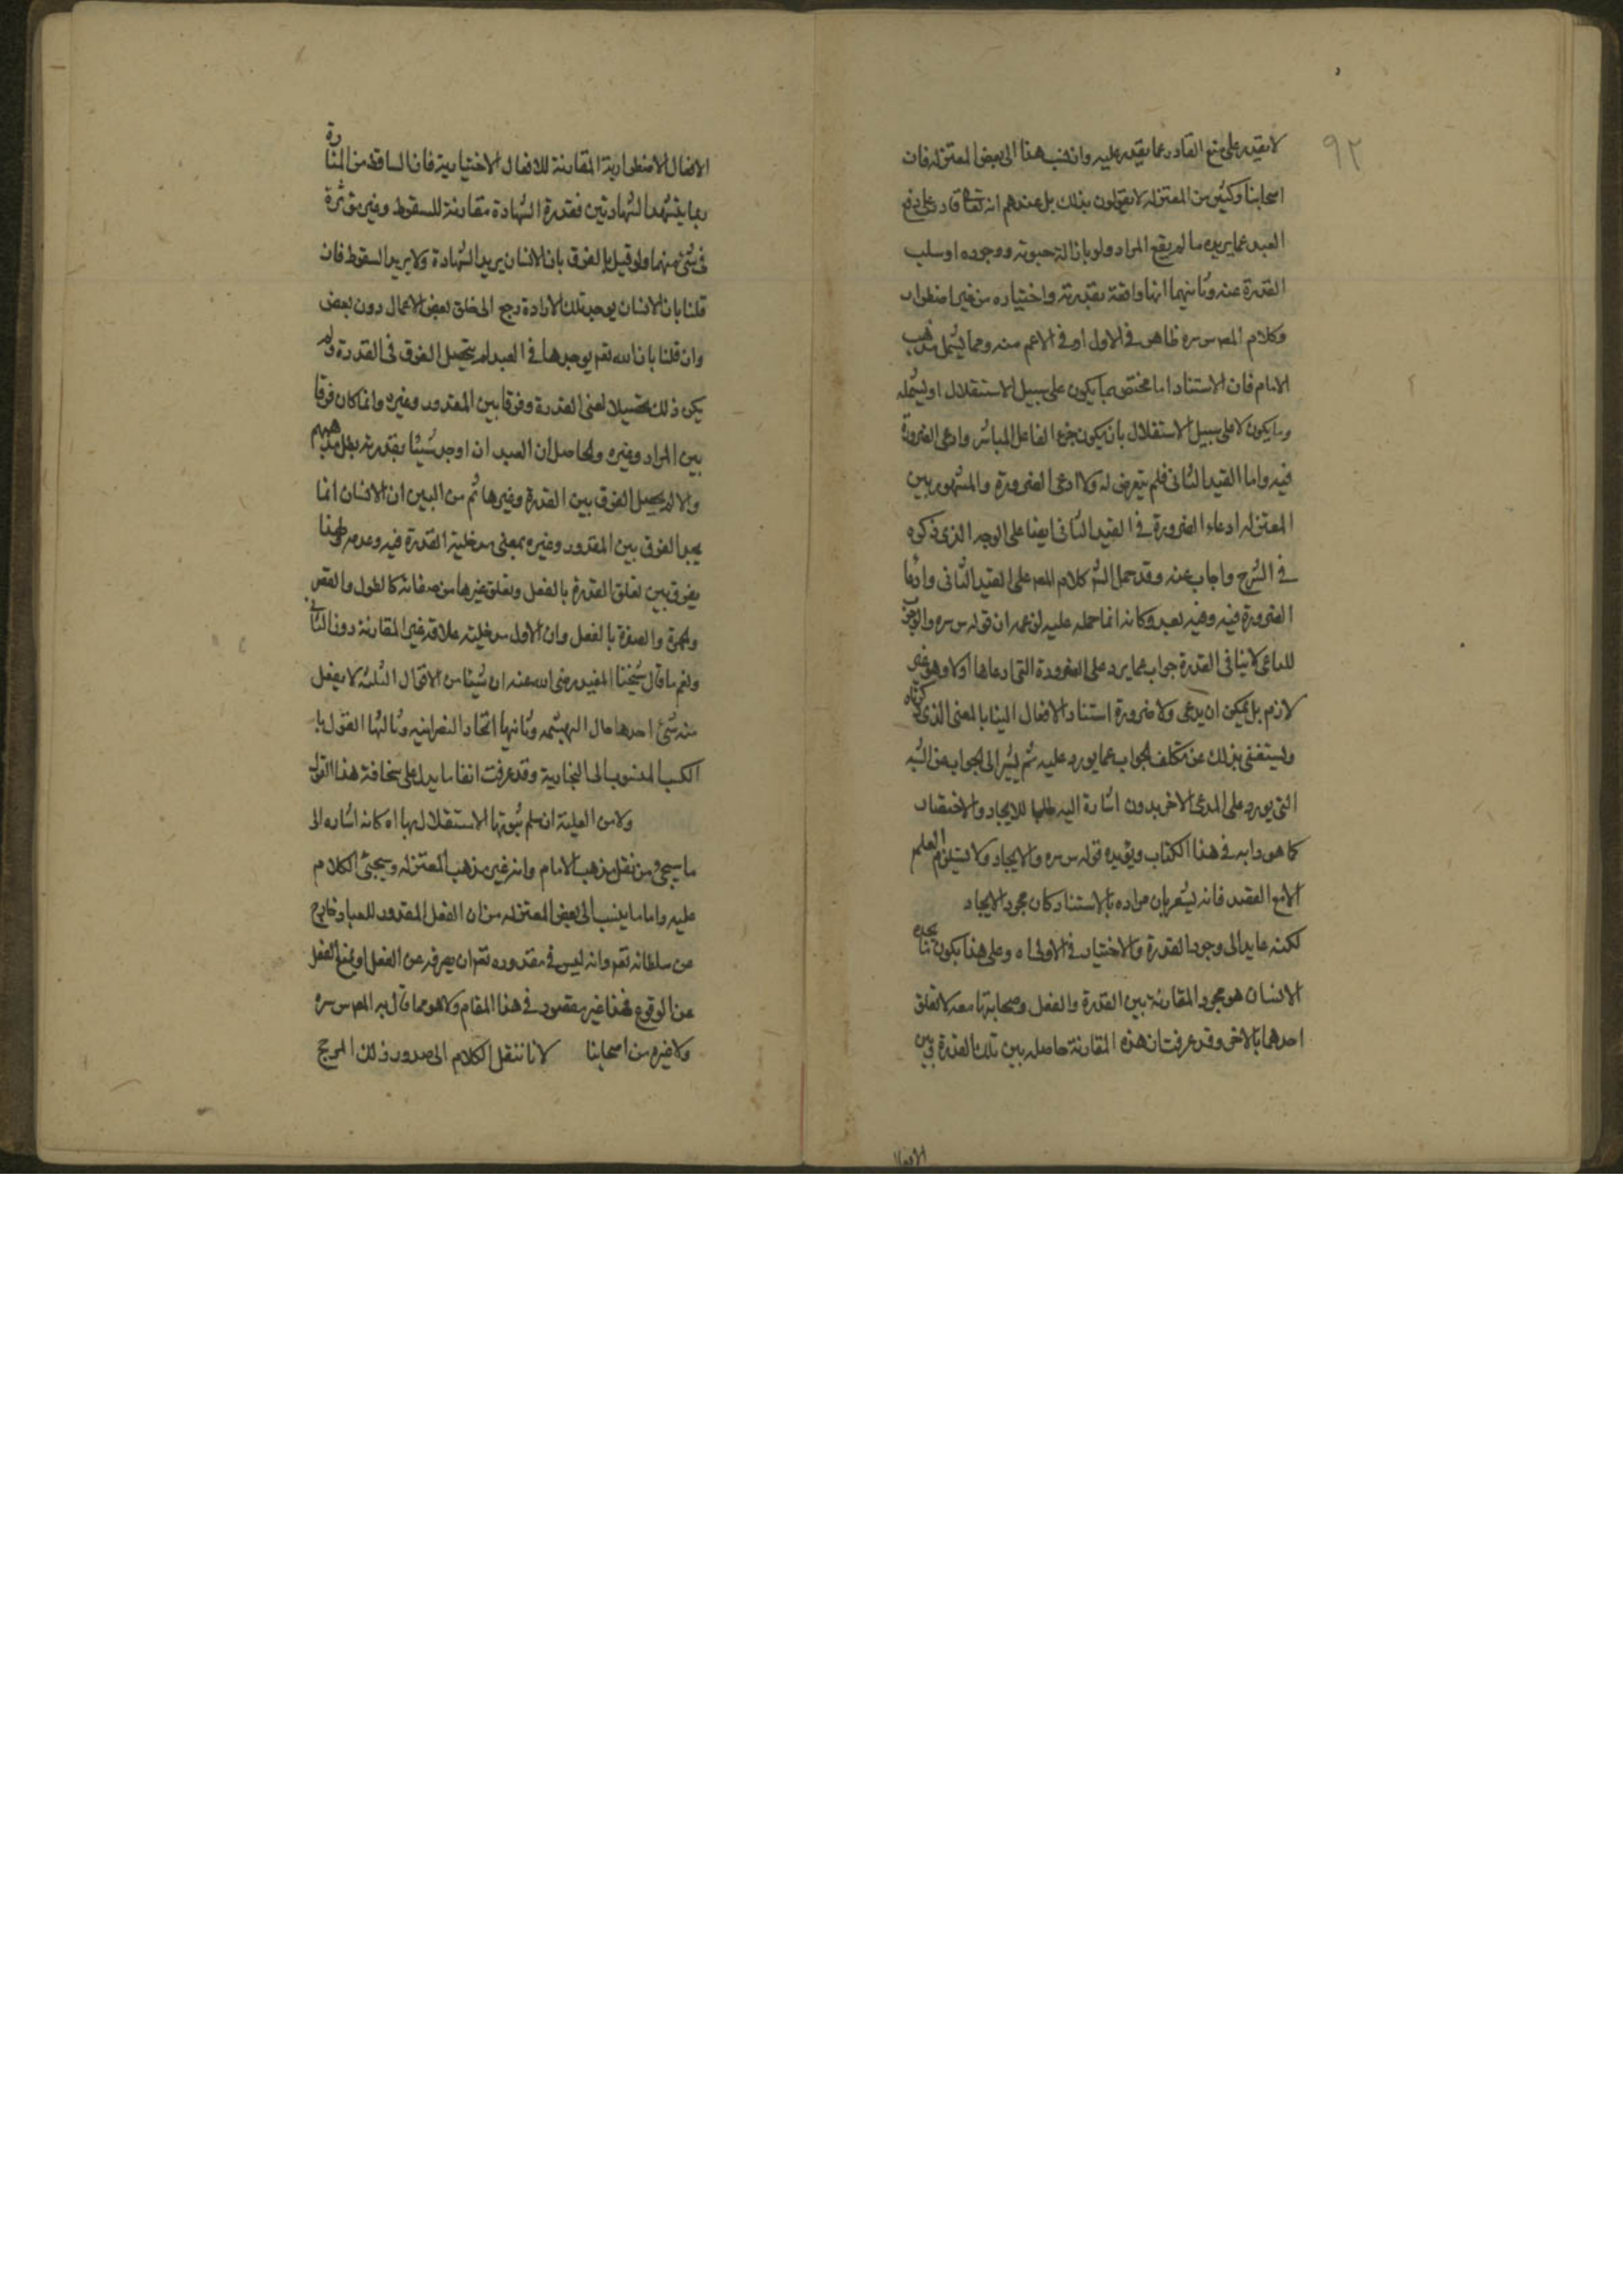 ٩٢
لا يقدر على منع القادر عما يقدر عليه وان نسب هذا الى بعض المعتزله فان
اصحابنا وكثير من المعتزله لا يقولون بذلك بل عندهم انه تعالى قادر على دفع
العبد عما يريده ما لم يقع المراد ولو بازالة حيوته ووجوده او سلب
القدرة عنه وثانيهما انها واقعة بقدرته واختياره من غير اضطرار
وكلام المص س سره ظاهر في الاول او في الاعم منه ومما يشمل مذهب
الامام فان الاستناد اما مختص بما يكون على سبيل الاستقلال او يشمله
وما يكون لا على سبيل الاستقلال بان يكون جزء الفاعل المباشر وادعى الضرورة
فيه واما القيد الثاني فلم يتعرض له ولا ادعى الضرورة والمشهور بين
المعتزله ادعاء الضرورة في القيد الثاني ايضا على الوجه الذي ذكره
في الشرح واجاب عنه وقد حمل الش كلام المص على القيد الثاني وادعا
الضرورة فيه وفيه بعد وكانه انما حمله عليه لزعمه ان قوله س سره والوجوب
للداعي لا ينافي القدرة جواب عما يرد على الضرورة التي ادعاها اولا وهو غير
لازم بل يمكن ان يدعى ولا ضرورة استناد الافعال الينا بالمعنى الذي ذكرناه
ويستغنى بذلك عن تكلف الجواب عما يورد عليه ثم يشير الى الجواب عن الشبه
التي يورد على المدعى الاخر بدون اشارة اليه طلبا للايجاز والاختصار
كما هو دابه في هذا الكتاب ويؤيده قوله س سره والايجاد لا يستلزم العلم
الا مع القصد فانه يشعر بان مراده بالاستناد كان مجرد الايجاد
لكنه عايد الى وجود القدرة والاختيار في الاولى اه وعلى هذا يكون ما يجده
الانسان هو مجرد المقارنة بين القدرة والفعل وصحابتها معه لا تعلق
احدهما بالاخر وقد عرفت ان هذه المقارنة حاصله بين تلك القدرة وبين
الافعال
الافعال الاضطرارية المقارنة للافعال الاختيارية فان الساقط من المنارة
ربما يتشهد الشهادتين فقدرة الشهادة مقارنة للسقوط وغير مؤثرة
في شئ منهما ولو قيل بالفرق بان الانسان يريد الشهادة ولا يريد السقوط فان
قلنا بان الانسان يوجد تلك الارادة رجع الى خلق بعض الاعمال دون بعض
وان قلنا بان الله تعم يوجدها في العبد لم يتحصل الفرق في القدرة ولم
يكن ذلك تحصيلا لمعنى القدرة وفرقا بين المقدور وغيره وانما كان فرقا
بين المراد وغيره والحاصل ان العبد ان اوجد شيئا بقدرته بطل مذهبهم
والا لم يحصل الفرق بين القدرة وغيرها ثم من البين ان الانسان انما
يجد الفرق بين المقدور وغيره بمعنى مدخلية القدرة فيه وعدمه ولهذا
يفرق بين تعلق القدرة بالفعل وتعلق غيرها من صفاته كالطول والقصر
والحمرة والصفرة بالفعل وان الاول مدخليته علاقة غير المقارنة دون الثاني
ونعم ما قال شيخنا المفيد رضى الله عنه ان شيئا من الاقوال الثلثة لا يعقل
منه شئ احدها حال البهشميه وثانيها اتحاد النصرانيه وثالثها القول با
الكسب المنسوب الى النجارية وقد عرفت انفا ما يدل على سخافة هذا القول
ولا من العلية ان سلم ثبوتها الاستقلال بها اه كانه اشاره الى
ما سيجئ من نقل مذهب الامام وانه غير مذهب المعتزله وسيجئ الكلام
عليه واما ما ينسب الى بعض المعتزله من ان الفعل المقدور للعباد خارج
عن سلطانه تعم وانه ليس في مقدوره تعم ان يصرفه عن الفعل او يمنع الفعل
عن الوقوع فهذا غير مقصود في هذا المقام ولا هو مما قال به المص س سره
ولا غيره من اصحابنا لانا ننقل الكلام الى صدور ذلك المرجح